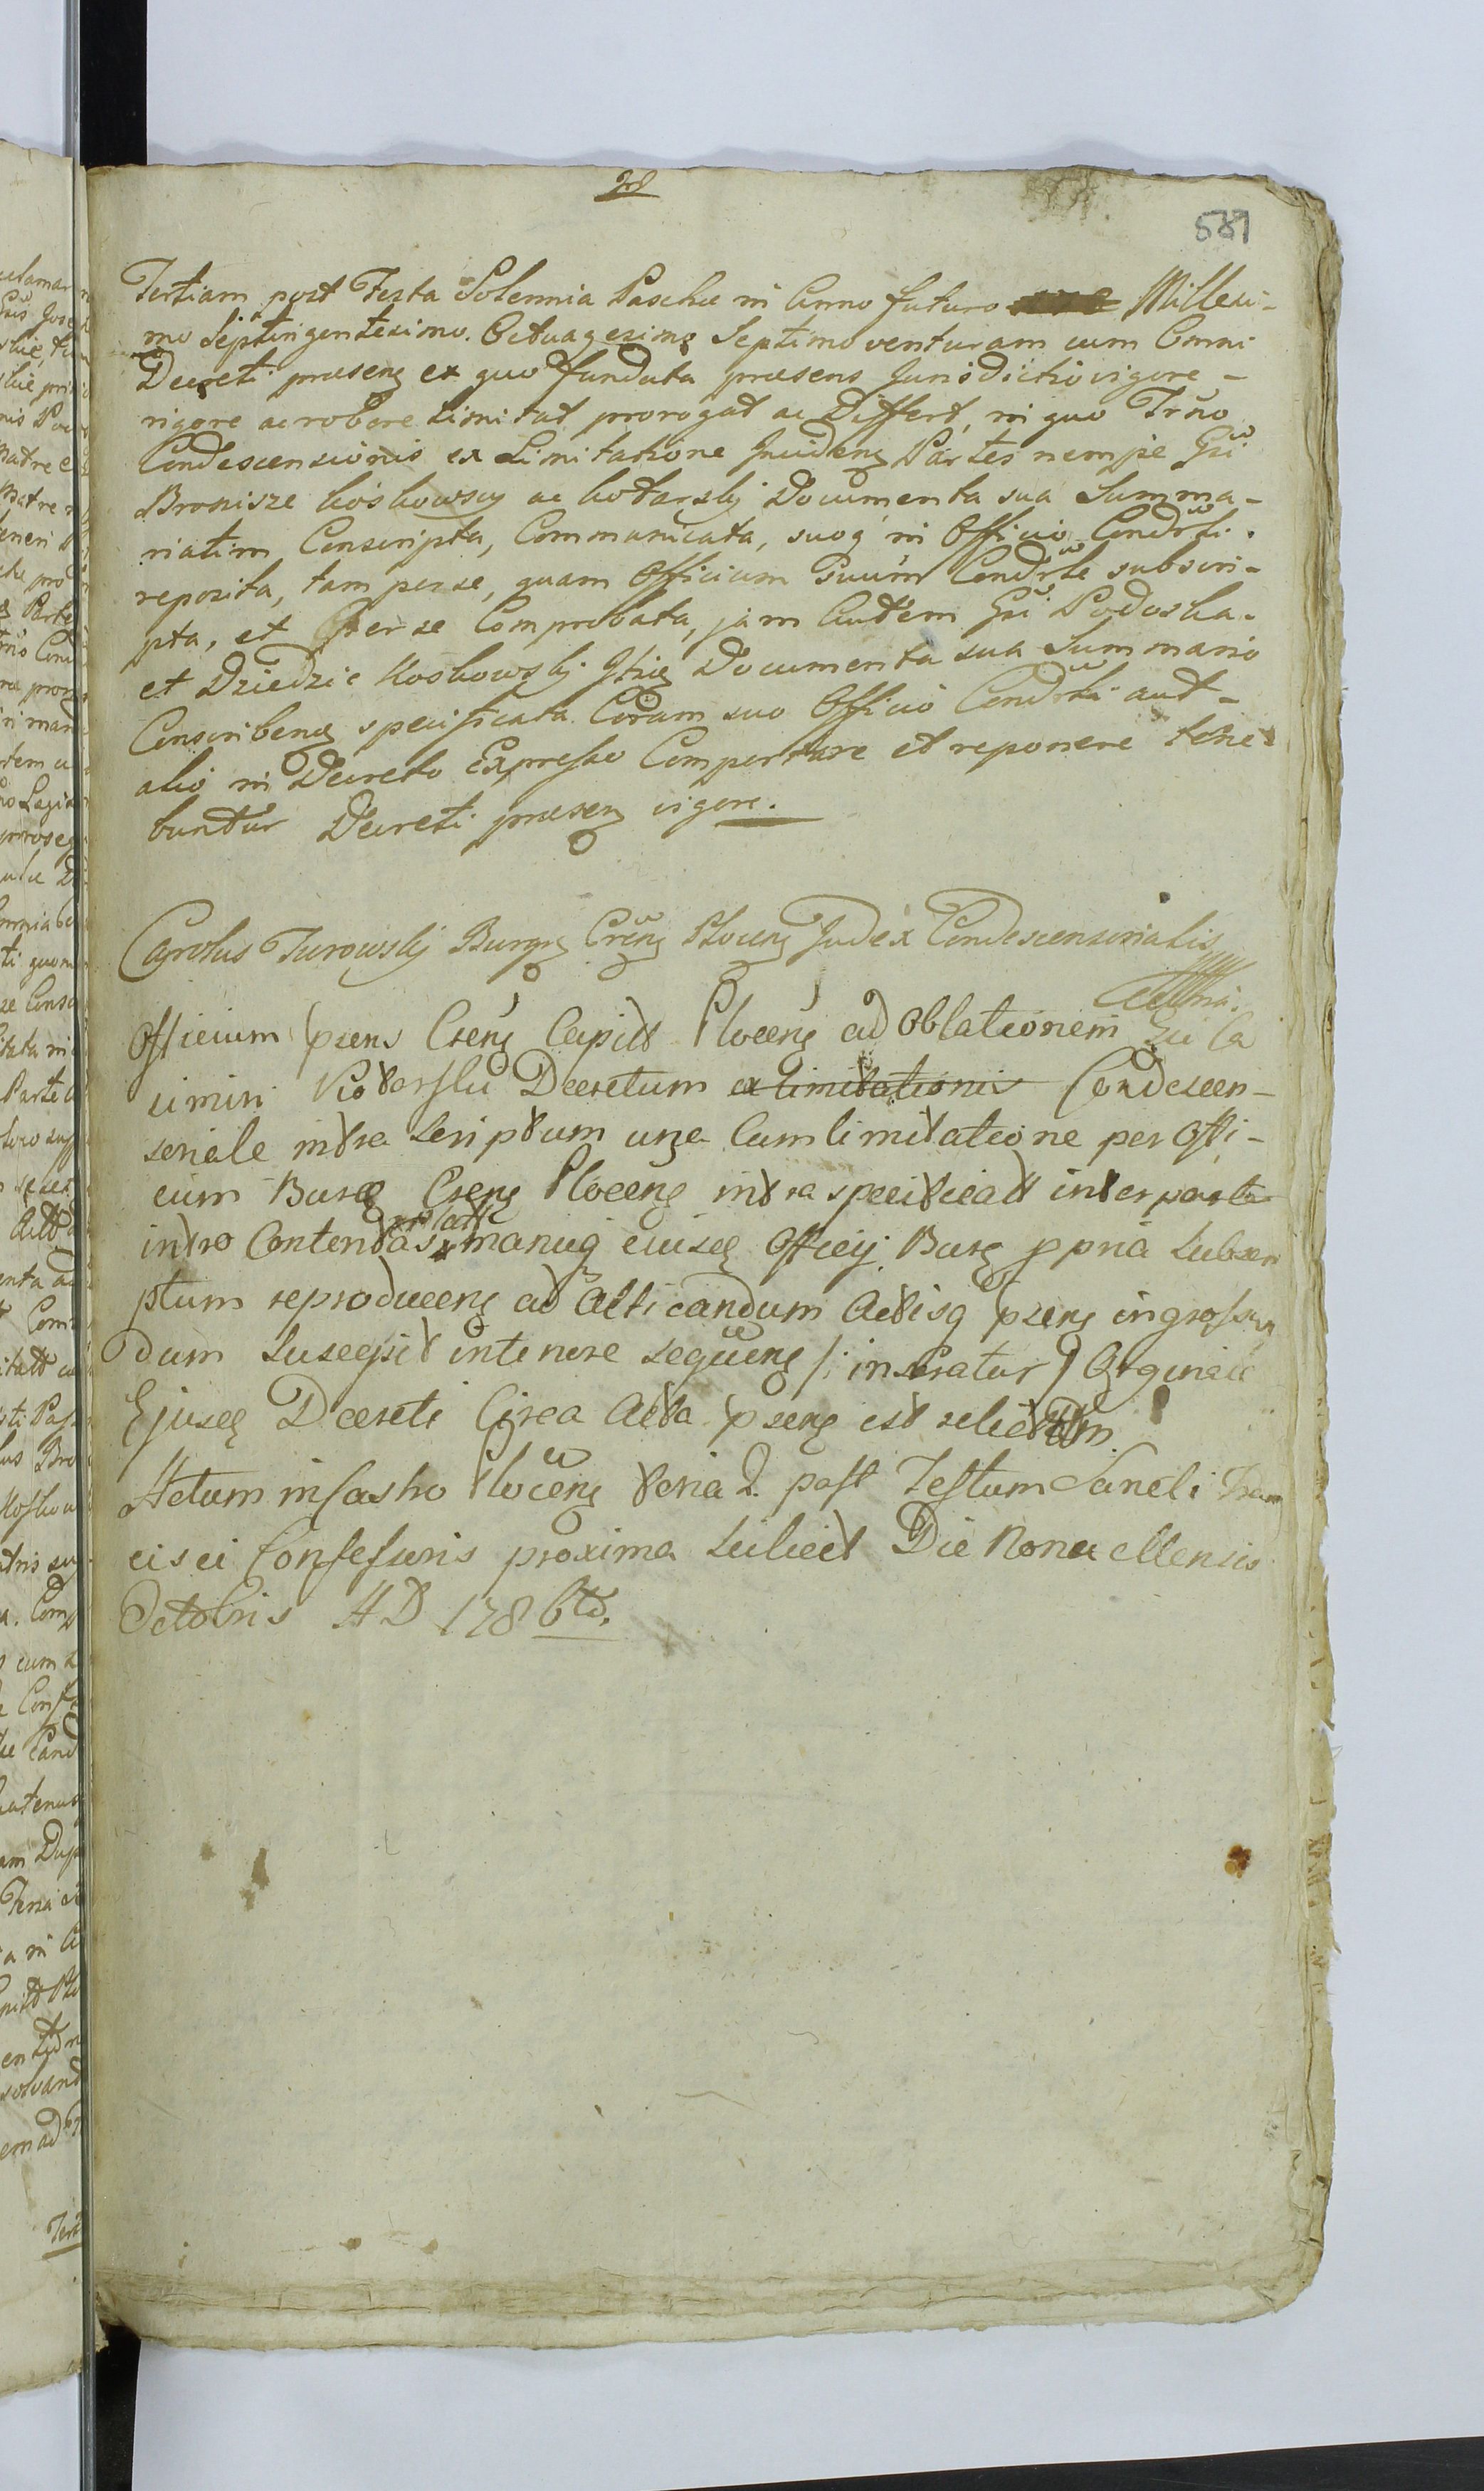 589
Tertiam post Festa Solennia Paschæ in Anno futuro Millesi-
mo Septingentesimo Octuagesimo Septimo venturam cum Omni
Decreti præsenꝫ ex quo fundata præsens Jurisdictio vigore -
rigore ac robore Limitat prorogat ac Differt, in quo Trno
Condescensionis ex Limitatione Incidenꝫ Partes nempe Gsi
Bronisze Koskowscy ac Kotarsky Documenta sua Summa-
riatim Conscripta, Communicata, suoq in Officio Condrli.
reposita, tam per se, quam Officium Suum Condrle subscri-
pta, et Per se Comprobata, jam Autem Gsi Podoska.
et Dziedzic Koskowsky Documenta sua Summario
Conscribenꝫ specificata Coram suo Officio Condrli aut -
alio in Decreto Expresso Comportare et reponere tene
buntur Decreti præsenꝫ vigore.
Carolus Turowsky Burgꝫ Crenꝫ Plocenꝫ Judex Condescensorialis
Officium præns Csenꝫ Capitt Plocenꝫ ad Oblationem Gsi Ca
simiri Decretum ex limitationis Condescen-
soriale intra scriptum una Cum limitatione per Offi-
cium Burgꝫ Csenꝫ Plocenꝫ intra specificatt inter parte
intro Contentas manuq eiusdꝫ Officij Burgꝫ ppria Subscri
ptum reproducenꝫ ad Acticandum Actisq prænꝫ ingrossan
dum Suscepit in tenore sequenꝫ /: inseratur Originale
Ejusdꝫ Decreti Circa Acta prænꝫ est relictum.
Actum in Castro Plocenꝫ feria 2. post Festum Sancti Fran
cisci Confessoris proxima scilicet Die Nona Mensis
Octobris AD 1786to.